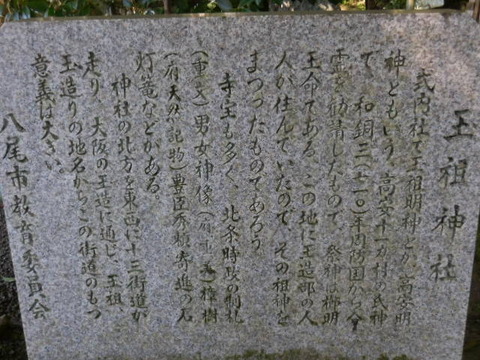 玉祖神社
式内社で玉祖明神とか、高安明
神ともいう。高安十一カ村の氏神
で、和銅三(七一〇)年周防国から分
霊を勧請したもので、祭神は櫛明
玉命である。この地に玉造部の人
人が住んでいたので、その祖神を
まつったものであろう。
寺宝も多く、北条時政の制札
(重文)男女神像(府重美)樟樹
(府天然記物)豊臣秀頼寄進の石
灯篭などがある。
神社の北方を東西に十三街道が
走り、大阪の玉造に通じ、玉祖、
玉造りの地名からこの街道のもつ
意義は大きい。
八尾市教育委員会